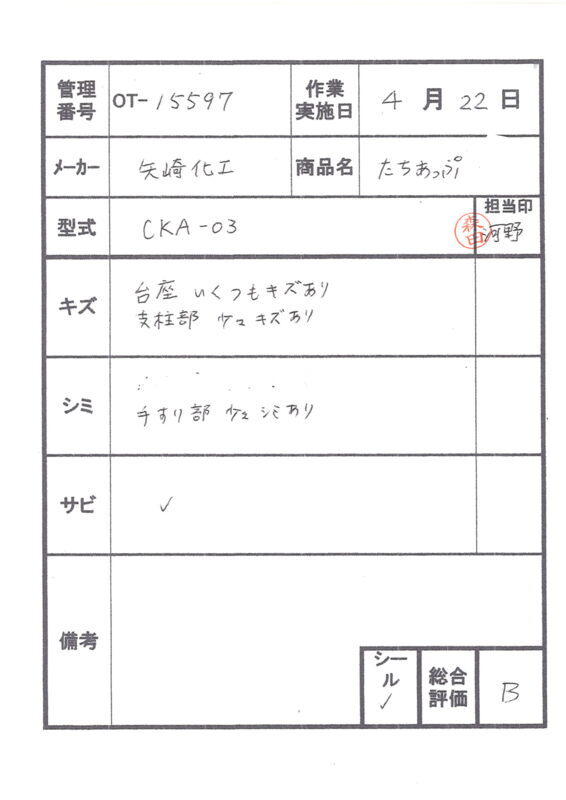 管理番号 OT-15597 作業実施日 4月22日
メーカー 矢崎化工 商品名 たちあっぷ
型式 CKA-03 担当印 森田 河野
キズ 台座 いくつもキズあり
支柱部 少々キズあり
シミ 手すり部 少々シミあり
サビ ✓
備考
シール ✓ 総合評価 B